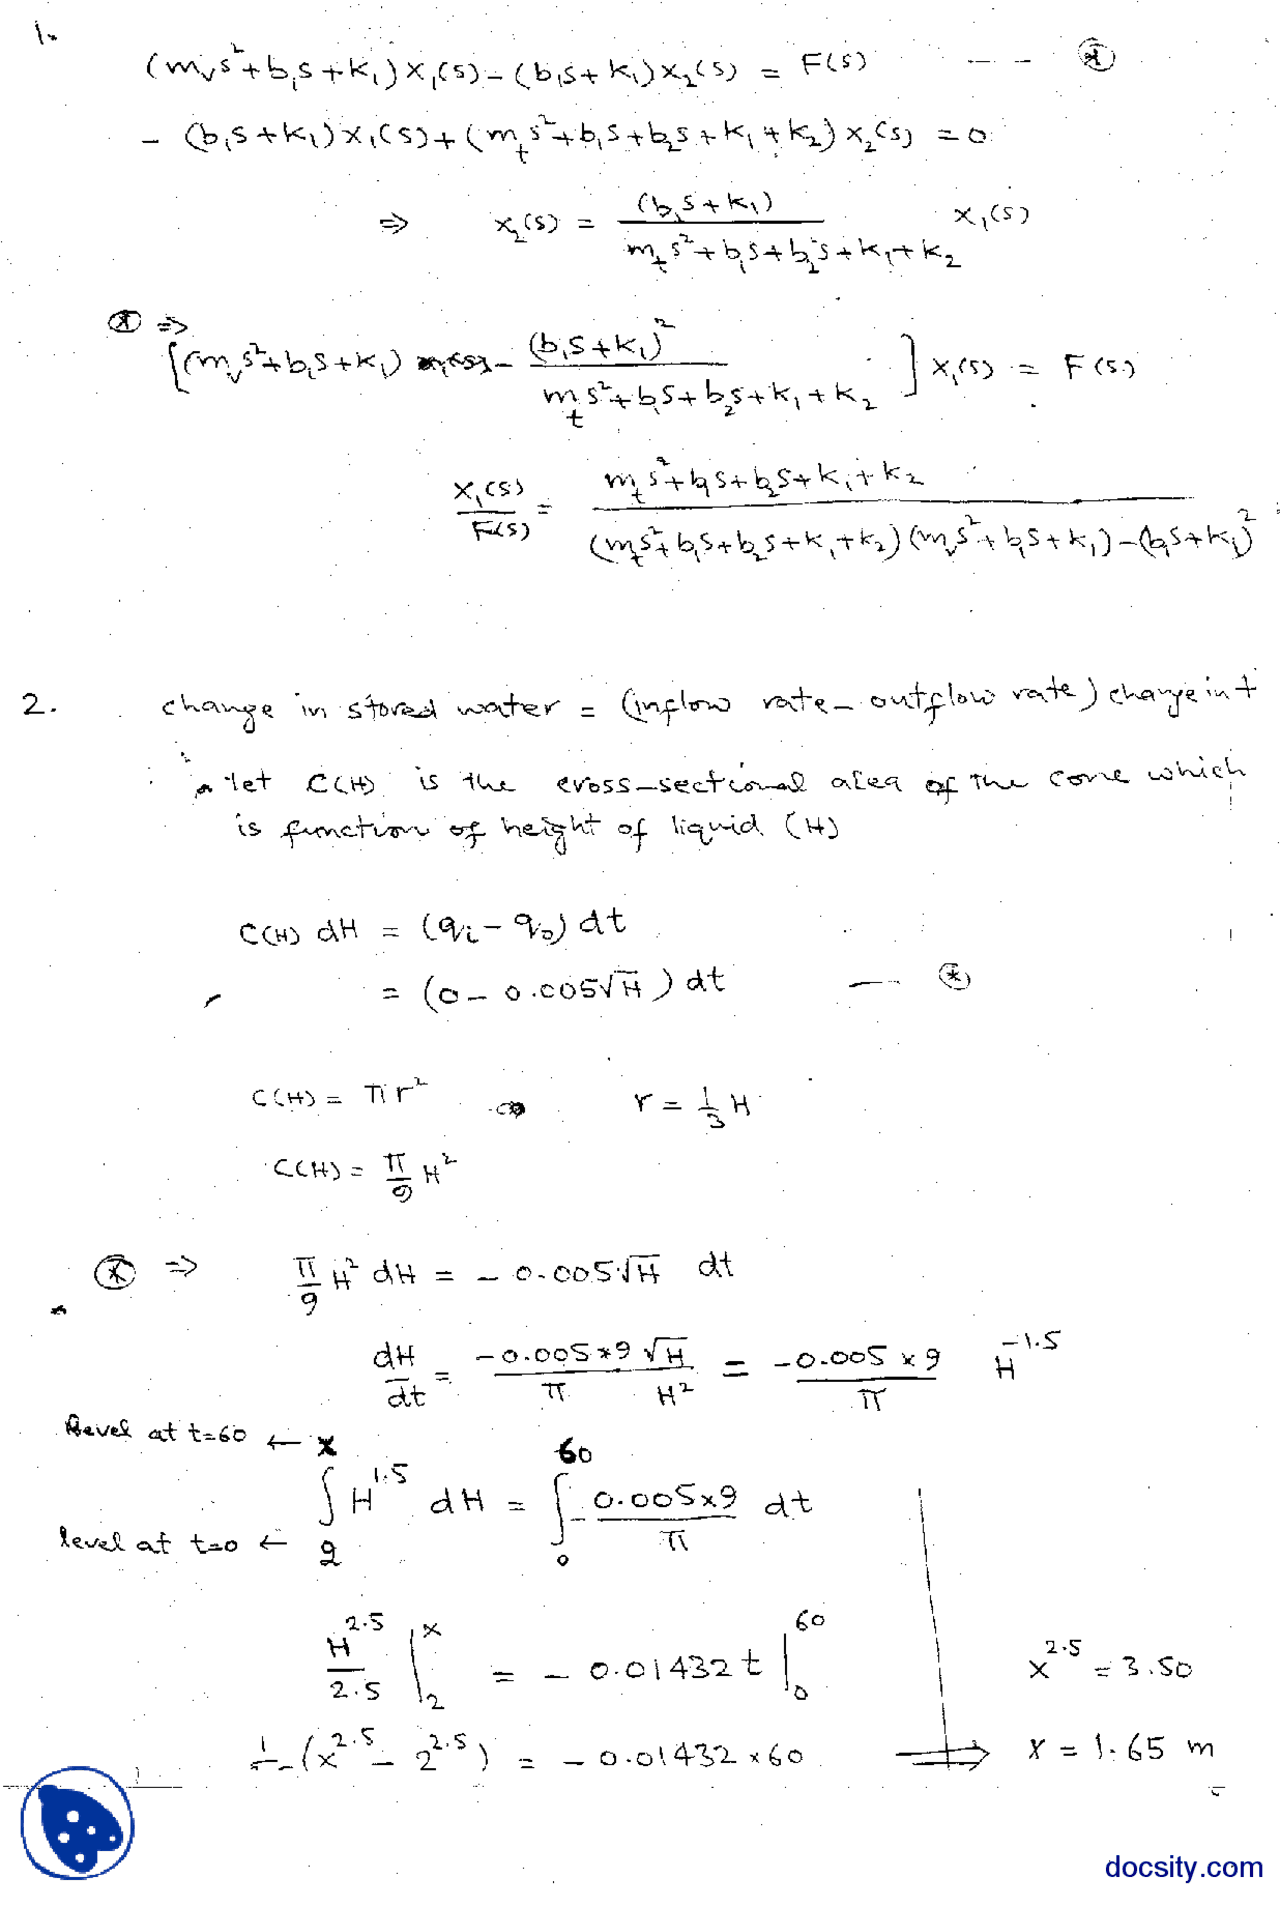 1.
(m_v s² + b₁s + k₁) X₁(s) – (b₁s + k₁) X₂(s) = F(s) --- ⊛
– (b₁s + k₁) X₁(s) + (m_t s² + b₁s + b₂s + k₁ + k₂) X₂(s) = 0
⇒ X₂(s) = (b₁s + k₁) / (m_t s² + b₁s + b₂s + k₁ + k₂) X₁(s)
⊛ ⇒
[(m_v s² + b₁s + k₁) – (b₁s + k₁)² / (m_t s² + b₁s + b₂s + k₁ + k₂)] X₁(s) = F(s)
X₁(s) / F(s) = (m_t s² + b₁s + b₂s + k₁ + k₂) / ((m_t s² + b₁s + b₂s + k₁ + k₂)(m_v s² + b₁s + k₁) – (b₁s + k₁)²)
2. change in stored water = (inflow rate – outflow rate) change in t
let C(H) is the cross-sectional area of the cone which
is function of height of liquid (H)
C(H) dH = (q_i – q_o) dt
= (0 – 0.005√H) dt --- ⊛
C(H) = πr² r = 1/3 H
C(H) = π/9 H²
⊛ ⇒ π/9 H² dH = – 0.005√H dt
dH/dt = –0.005*9 √H / π H² = –0.005 × 9 / π H^-1.5
level at t=60 ← x 60
∫ H^1.5 dH = ∫ – 0.005×9 / π dt
level at t=0 ← 2 0
H^2.5 / 2.5 |₂^x = – 0.01432 t |₀^60 x^2.5 = 3.50
1/ (x^2.5 – 2^2.5) = – 0.01432 × 60 ⟹ x = 1.65 m
docsity.com